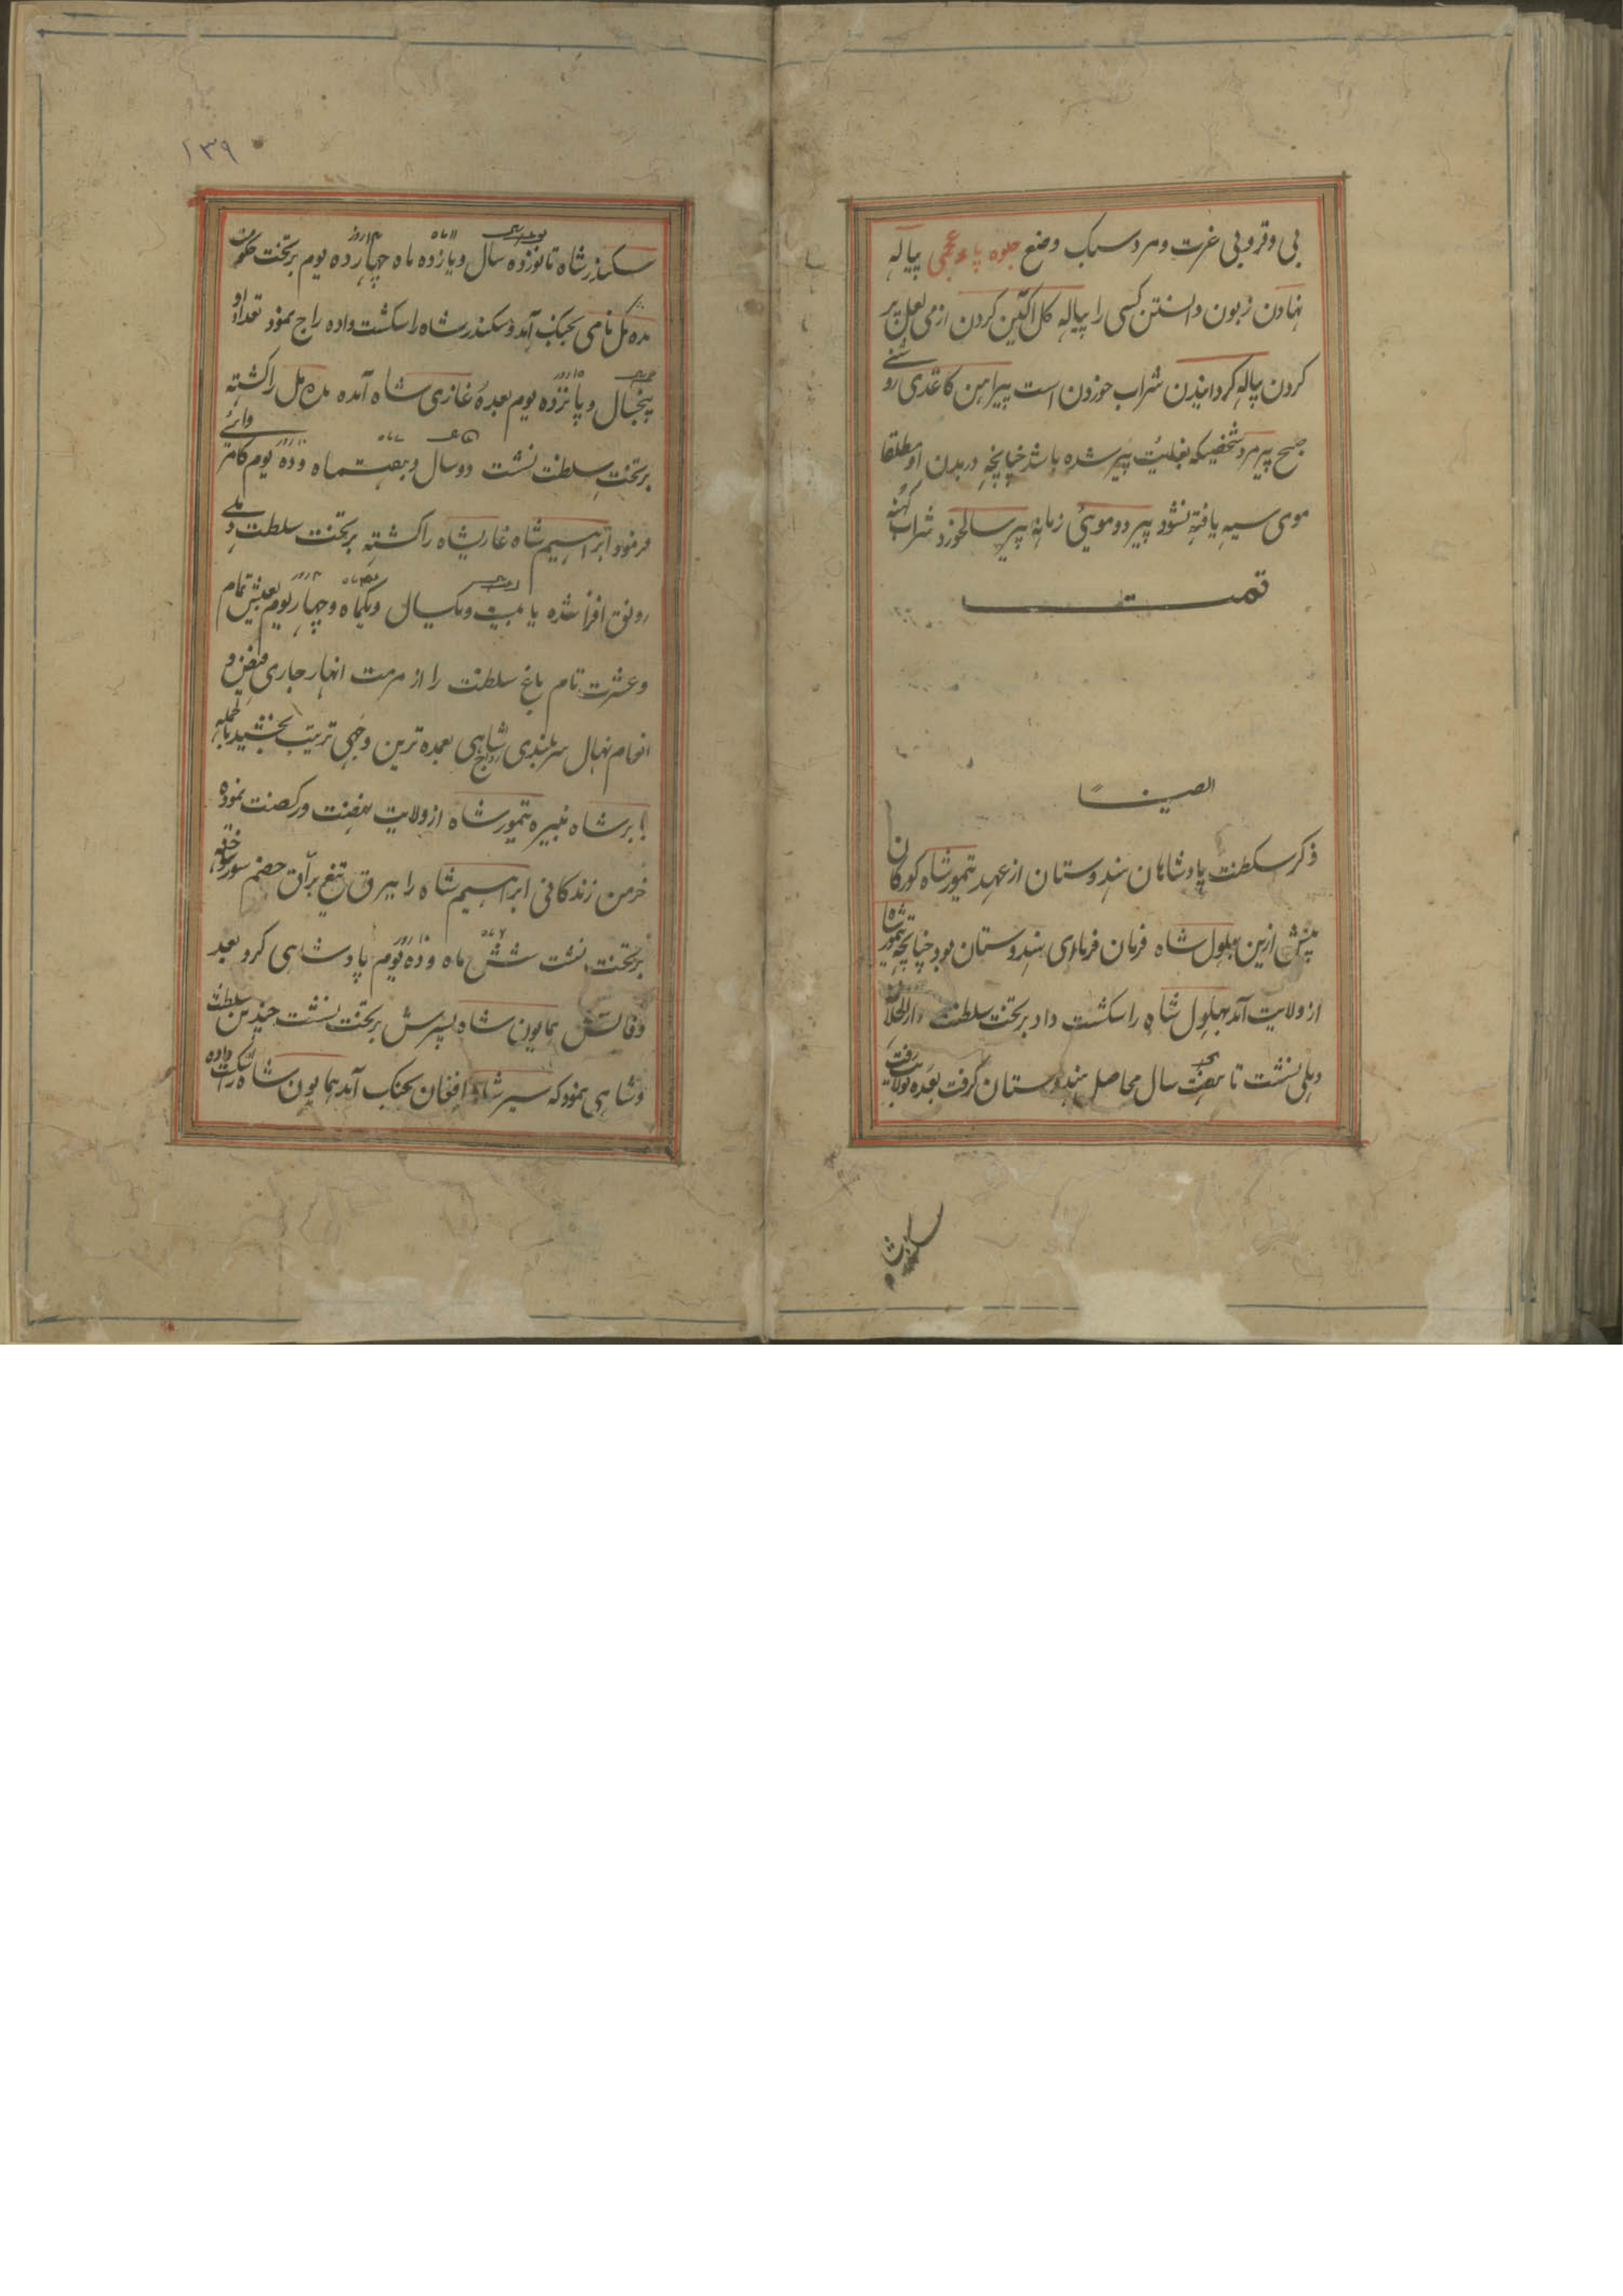 بی وقر و بی غرت و مرد سبک وضع جلوه پاء عجمی پیاله
نهادن زبون دانستن کسی را پیاله کل اکین کردن از می لعل پر
کردن پیاله کردانیدن شراب خوردن است پیراهن کاغذی روشنی
صبح پیر مرد شخصیکه بغایت پیر شده باشد چنانچه در بدن او مطلقا
موی سیه یافته نشود پیر دومویی زمانه پیر سالخورد شراب کهنه
تمت
ایضا
ذکر سلطنت پادشاهان هندوستان از عهد تیمور شاه کورکان
پیش ازین بهلول شاه فرمان فرمای هندوستان بود چنانچه تیمور شاه
از ولایت آمد بهلول شاه را شکست داد بر تخت سلطنت دار الخلافت
دهلی نشست تا هفت سال محاصل هندوستان کرفت بعده بولایت رفت
سکندر شاه
۱۳۹
سکندر شاه تا نوزده سال و یازده ماه چهارده یوم بر تخت حکومت
مده مل نامی بجنک آمد و سکندر شاه را شکست داده راج نمود تعداد او
پنجسال و پانزده یوم بعده غازی شاه آمده مده مل را کشته
بر تخت سلطنت نشست دو سال و هفت ماه و ده یوم کامروائی
فرمود ابراهیم شاه غازیشاه را کشته بر تخت سلطنت دهلی
رونق افزا شده یا بیست و یکسال و یکماه و چهار یوم بعیش تمام
و عشرت تام باغ سلطنت را از مرمت انهار جاری فیض و
انعام نهال سربلندی شاهی بعمده ترین وجهی تربیت بخشید بالجمله
بابر شاه نبیره تیمور شاه از ولایت نهضت و رکضت نموده
خرمن زندکانی ابراهیم شاه را ببرق تیغ برّاق خصم سوز سوخته
بر تخت نشست شش ماه و ده یوم پادشاهی کرد بعد
وفاتش همایون شاه پسرش بر تخت نشست چندین سلطنت
و شاهی نمود که سیر شاه افغان بجنک آمد همایون شاه را شکست داده